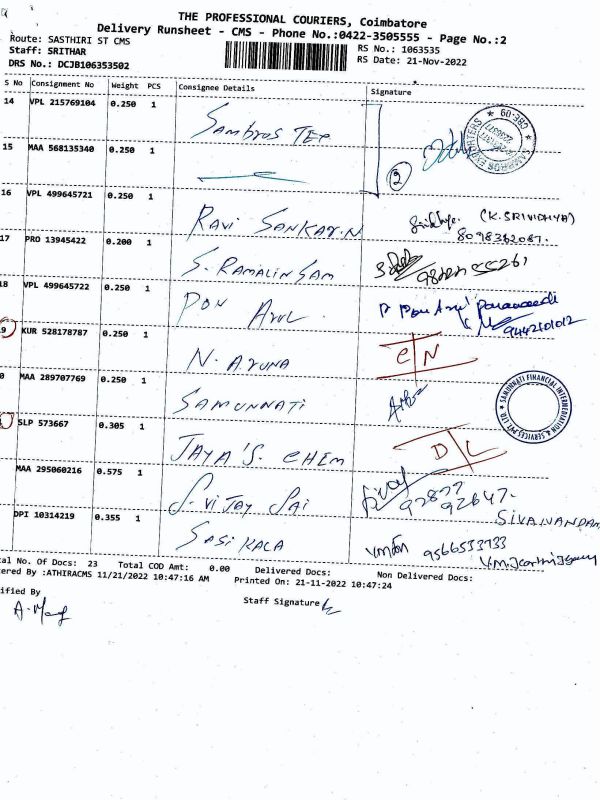 THE PROFESSIONAL COURIERS, Coimbatore
Delivery Runsheet - CMS - Phone No.:0422-3505555 - Page No.:2
Route: SASTHIRI ST CMS
Staff: SRITHAR
RS No.: 1063535
DRS No.: DCJB106353502
RS Date: 21-Nov-2022
S No Consignment No Weight PCS Consignee Details Signature
14 VPL 215769104 0.250 1 Sambros TEP
SAMBROS EXPORTERS * CBE-09 *
15 MAA 568135340 0.250 1
2
16 VPL 499645721 0.250 1 RAVI SANKAR.N (K.SRIVIDHYA)
8098362087.
17 PRO 13945422 0.200 1 S. RAMALINSAM
18 VPL 499645722 0.250 1 PON ARUL
9442101012
9 KUR 528178787 0.250 1 N. ARUNA C N
0 MAA 289707769 0.250 1 SAMUNNATI
SAMUNNATI FINANCIAL INTERMEDIATION & SERVICES PVT. LTD.
SLP 573667 0.305 1 JAYA'S CHEM D L
MAA 295060216 0.575 1 S. VIJAY SAI
92877 92647.
SIVANANDAM
DPI 10314219 0.355 1 SASIKALA 9566533933
tal No. Of Docs: 23 Total COD Amt: 0.00 Delivered Docs: Non Delivered Docs:
tered By :ATHIRACMS 11/21/2022 10:47:16 AM Printed On: 21-11-2022 10:47:24
ified By Staff Signature